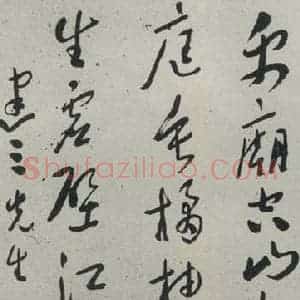 禹廟空山
庭垂橘柚
生虛壁江
惠之先生
Shufaziliao.COM